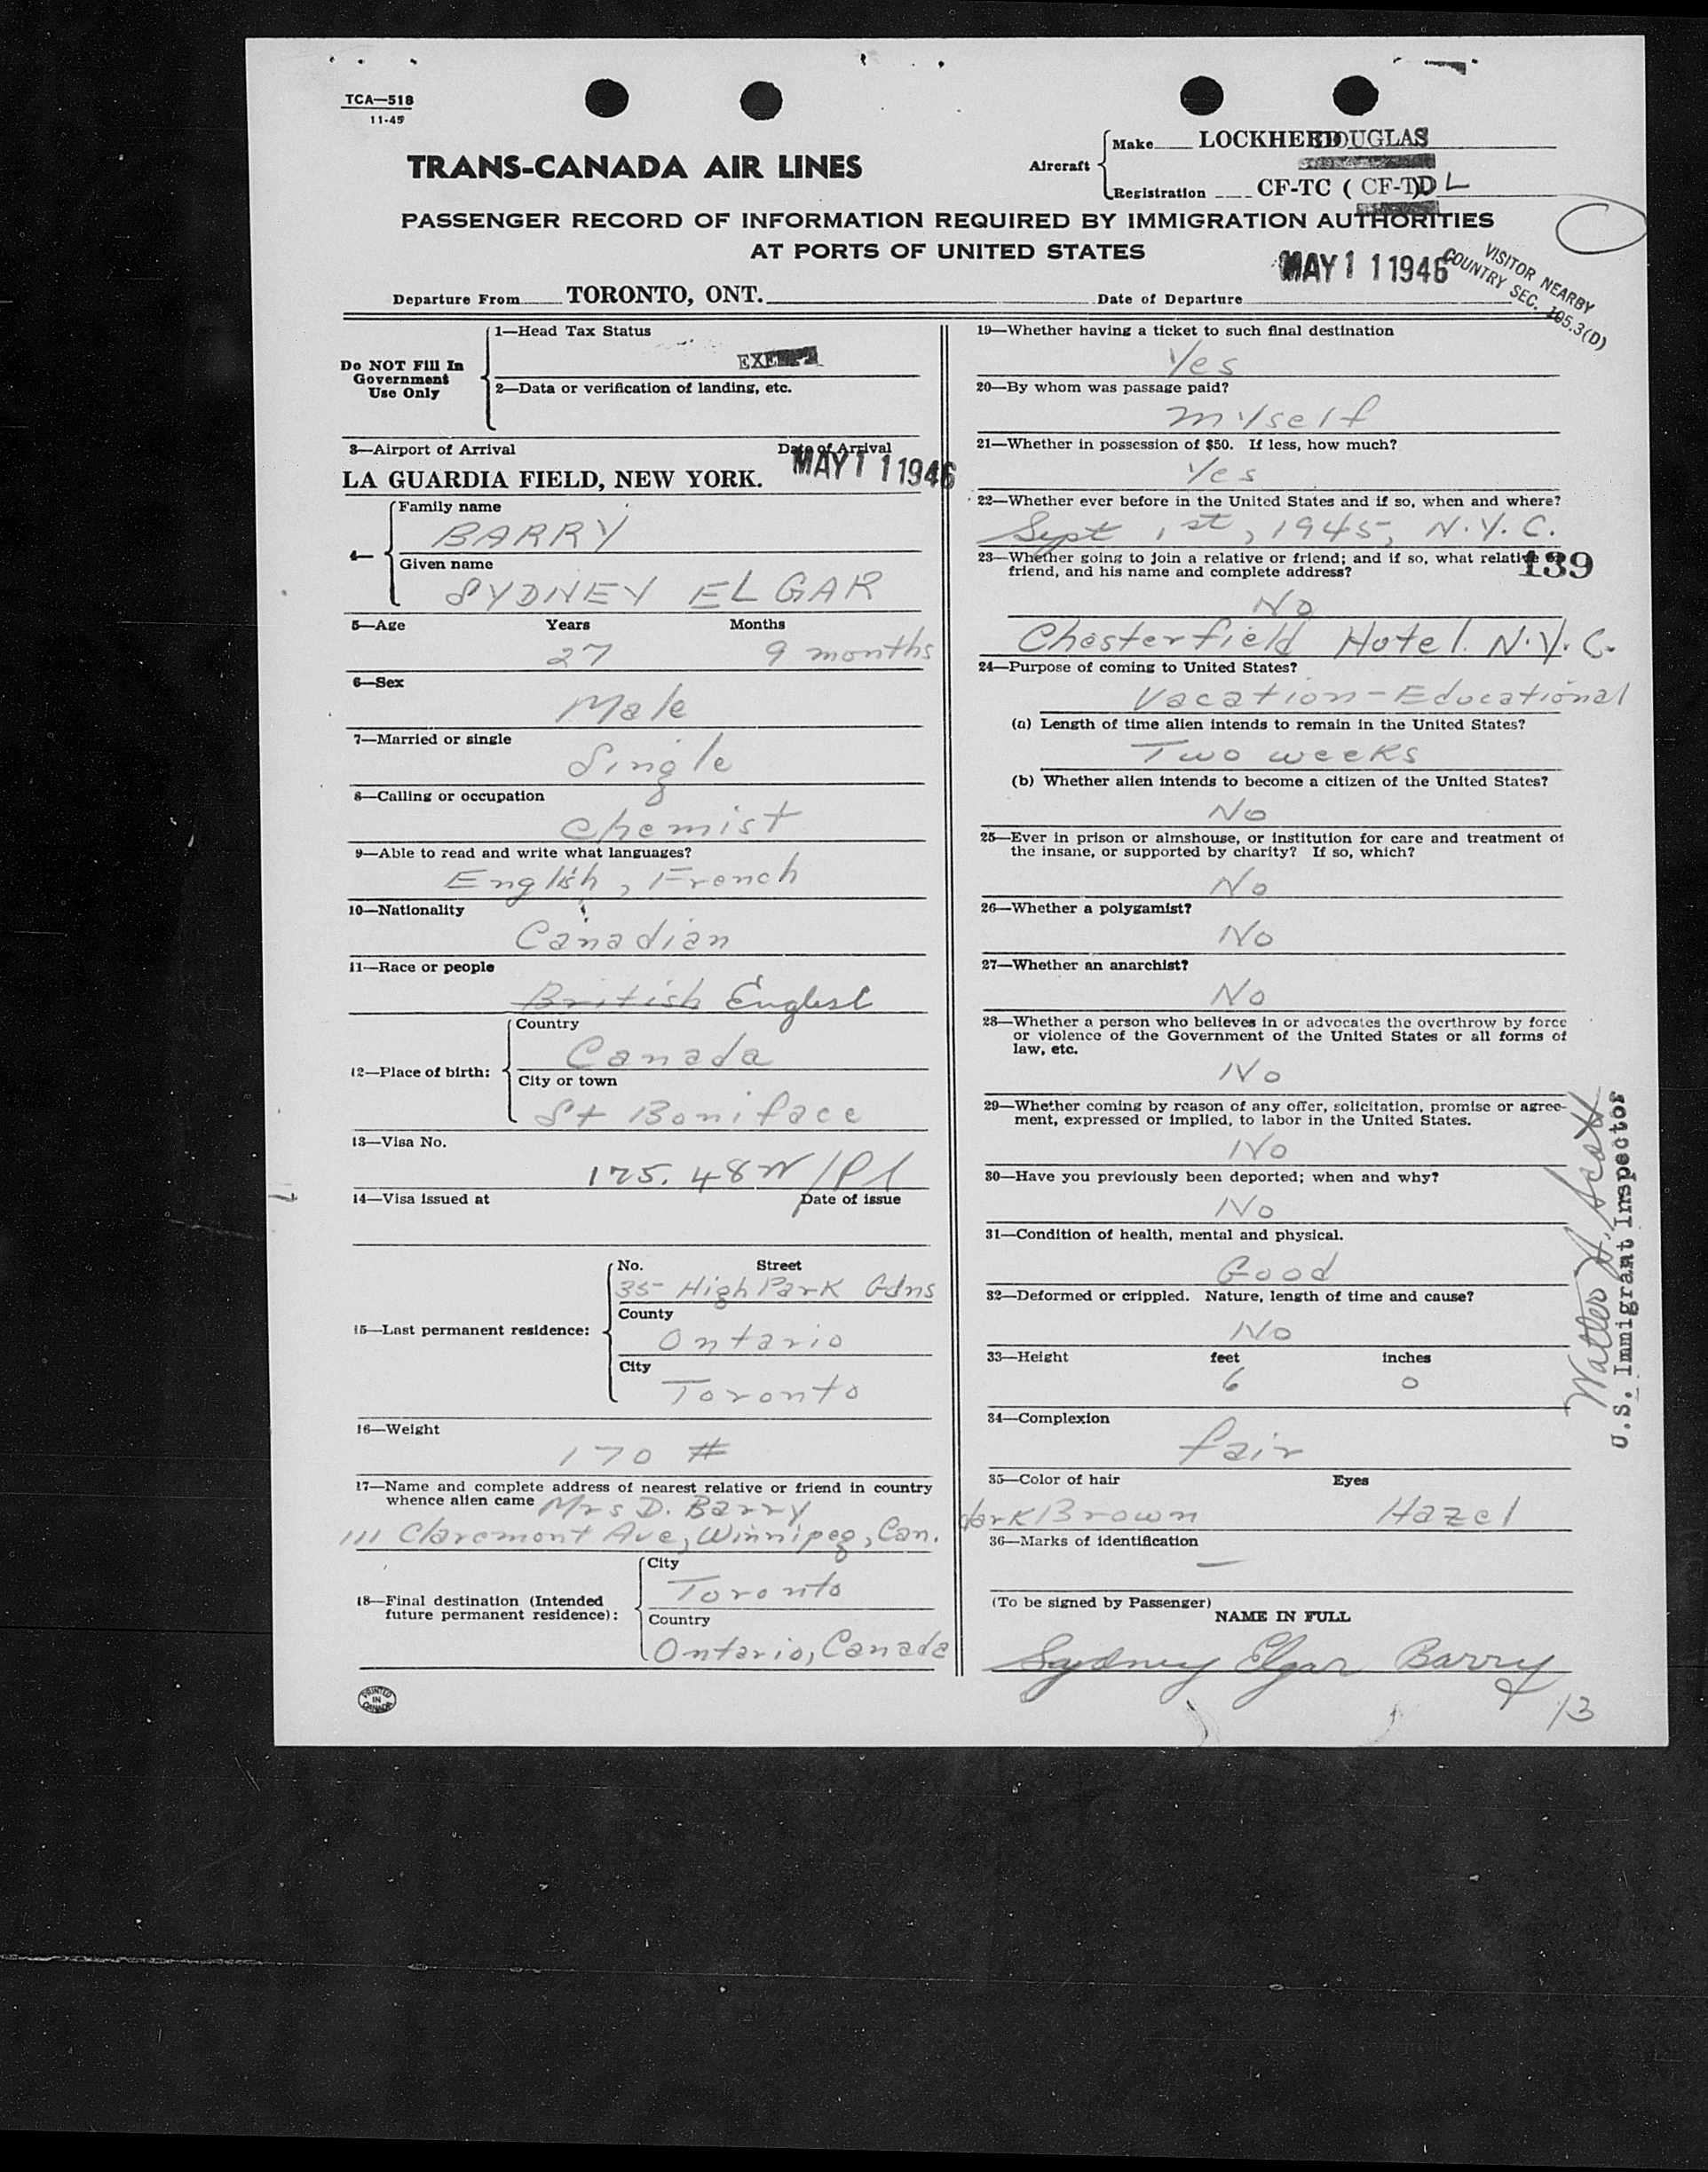 TCA—518
11-45
TRANS-CANADA AIR LINES
Aircraft
Make LOCKHEED DOUGLAS
Registration CF-TC ( CF-TD L
PASSENGER RECORD OF INFORMATION REQUIRED BY IMMIGRATION AUTHORITIES
AT PORTS OF UNITED STATES
MAY 1 1 1946
VISITOR NEARBY
COUNTRY SEC. 105.3(D)
Departure From TORONTO, ONT. Date of Departure
Do NOT Fill In
Government
Use Only
1—Head Tax Status
EXEMPT
2—Data or verification of landing, etc.
3—Airport of Arrival Date of Arrival
LA GUARDIA FIELD, NEW YORK. MAY 1 1 1946
4—
Family name
BARRY
Given name
SYDNEY ELGAR
5—Age Years Months
27 9 months
6—Sex
Male
7—Married or single
Single
8—Calling or occupation
Chemist
9—Able to read and write what languages?
English, French
10—Nationality
Canadian
11—Race or people
British English
12—Place of birth:
Country
Canada
City or town
St Boniface
13—Visa No.
175.48
14—Visa issued at Date of issue
15—Last permanent residence:
No. Street
35 High Park Gdns
County
Ontario
City
Toronto
16—Weight
170 #
17—Name and complete address of nearest relative or friend in country
whence alien came Mrs D. Barry
111 Claremont Ave, Winnipeg, Can.
18—Final destination (Intended
future permanent residence):
City
Toronto
Country
Ontario, Canada
PRINTED
IN
CANADA
19—Whether having a ticket to such final destination
Yes
20—By whom was passage paid?
myself
21—Whether in possession of $50. If less, how much?
Yes
22—Whether ever before in the United States and if so, when and where?
Sept 1st, 1945, N.Y.C.
23—Whether going to join a relative or friend; and if so, what relative or
friend, and his name and complete address?
139
No
Chesterfield Hotel. N.Y.C.
24—Purpose of coming to United States?
Vacation - Educational
(a) Length of time alien intends to remain in the United States?
Two weeks
(b) Whether alien intends to become a citizen of the United States?
No
25—Ever in prison or almshouse, or institution for care and treatment of
the insane, or supported by charity? If so, which?
No
26—Whether a polygamist?
No
27—Whether an anarchist?
No
28—Whether a person who believes in or advocates the overthrow by force
or violence of the Government of the United States or all forms of
law, etc.
No
29—Whether coming by reason of any offer, solicitation, promise or agree-
ment, expressed or implied, to labor in the United States.
No
30—Have you previously been deported; when and why?
No
31—Condition of health, mental and physical.
Good
32—Deformed or crippled. Nature, length of time and cause?
No
33—Height feet inches
6 0
34—Complexion
fair
35—Color of hair Eyes
dark Brown Hazel
36—Marks of identification
—
(To be signed by Passenger)
NAME IN FULL
Sydney Elgar Barry
13
Walter H. Scott
U.S. Immigrant Inspector